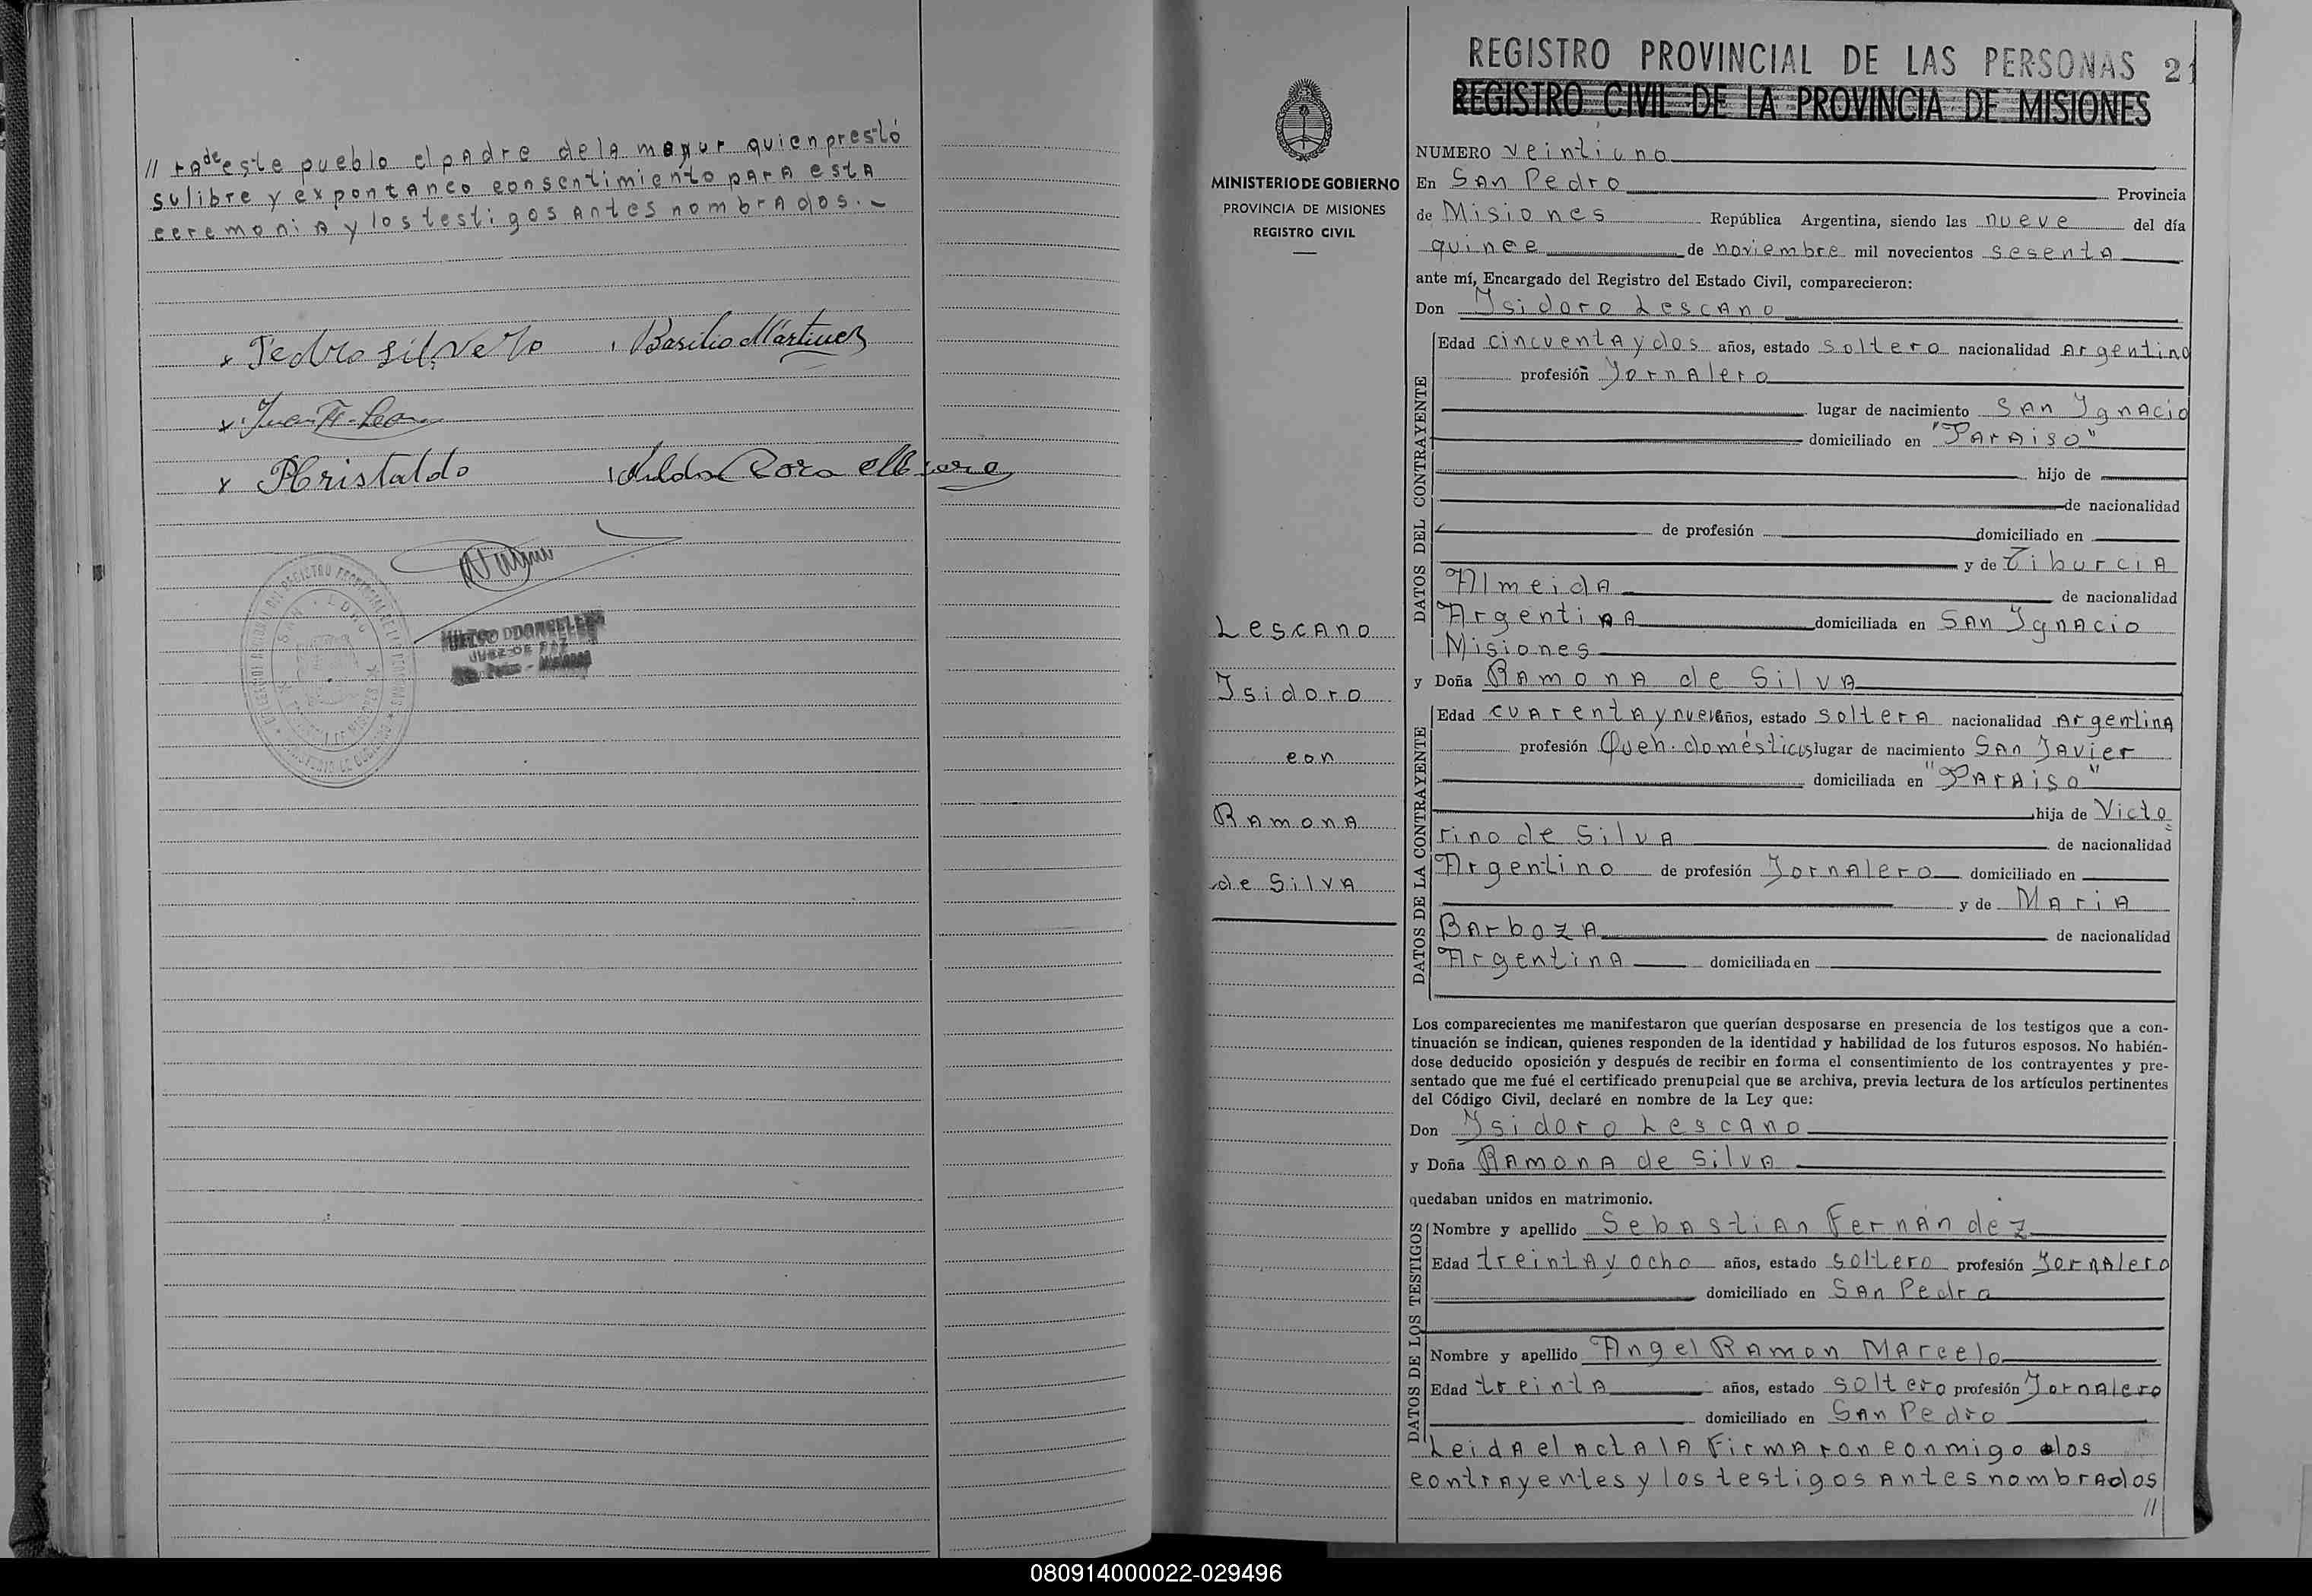 // ra de este pueblo el padre de la mayor quien prestó
su libre y expontaneo consentimiento para esta
ceremonia y los testigos antes nombrados.-
x Pedro Silvero Basilio Martinez
x
x Hristaldo
JUEZ DE PAZ
REGISTRO PROVINCIAL DE LAS PERSONAS 21
REGISTRO CIVIL DE LA PROVINCIA DE MISIONES
MINISTERIO DE GOBIERNO
PROVINCIA DE MISIONES
REGISTRO CIVIL
Lescano
Isidoro
con
Ramona
de Silva
NUMERO veintiuno
En San Pedro Provincia
de Misiones República Argentina, siendo las nueve del día
quince de noviembre mil novecientos sesenta
ante mí, Encargado del Registro del Estado Civil, comparecieron:
Don Isidoro Lescano
DATOS DEL CONTRAYENTE
Edad cincuenta y dos años, estado soltero nacionalidad Argentino
profesión Jornalero
lugar de nacimiento San Ignacio
domiciliado en "Paraiso"
hijo de
de nacionalidad
de profesión domiciliado en
y de Tiburcia
Almeida de nacionalidad
Argentina domiciliada en San Ignacio
Misiones
y Doña Ramona de Silva
DATOS DE LA CONTRAYENTE
Edad cuarenta y nueve años, estado soltera nacionalidad Argentina
profesión Queh. domésticos lugar de nacimiento San Javier
domiciliada en "Paraiso"
hija de Victo
rino de Silva de nacionalidad
Argentino de profesión Jornalero domiciliado en
y de Maria
Barboza de nacionalidad
Argentina domiciliada en
Los comparecientes me manifestaron que querían desposarse en presencia de los testigos que a con-
tinuación se indican, quienes responden de la identidad y habilidad de los futuros esposos. No habién-
dose deducido oposición y después de recibir en forma el consentimiento de los contrayentes y pre-
sentado que me fué el certificado prenupcial que se archiva, previa lectura de los artículos pertinentes
del Código Civil, declaré en nombre de la Ley que:
Don Isidoro Lescano
y Doña Ramona de Silva
quedaban unidos en matrimonio.
DATOS DE LOS TESTIGOS
Nombre y apellido Sebastian Fernández
Edad treinta y ocho años, estado soltero profesión Jornalero
domiciliado en San Pedro
Nombre y apellido Angel Ramon Marcelo
Edad treinta años, estado soltero profesión Jornalero
domiciliado en San Pedro
Leida el acta la firmaron conmigo los
contrayentes y los testigos antes nombrados
//
080914000022-029496